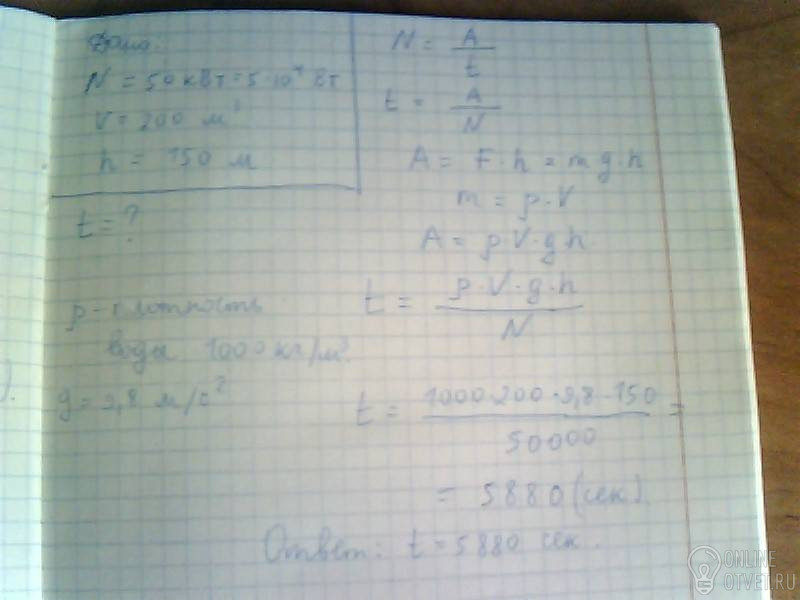 Дано:
N = 50 кВт = 5·10⁴ Вт
V = 200 м³
h = 150 м
t = ?
ρ - плотность
воды 1000 кг/м³.
g = 9,8 м/с²
N = A/t
t = A/N
A = F·h = m g·h
m = ρ·V
A = ρ·V·g·h
t = ρ·V·g·h/N
t = 1000·200·9,8·150/50000 =
= 5880 (сек).
Ответ: t = 5880 сек.
ONLINE
OTVET.RU